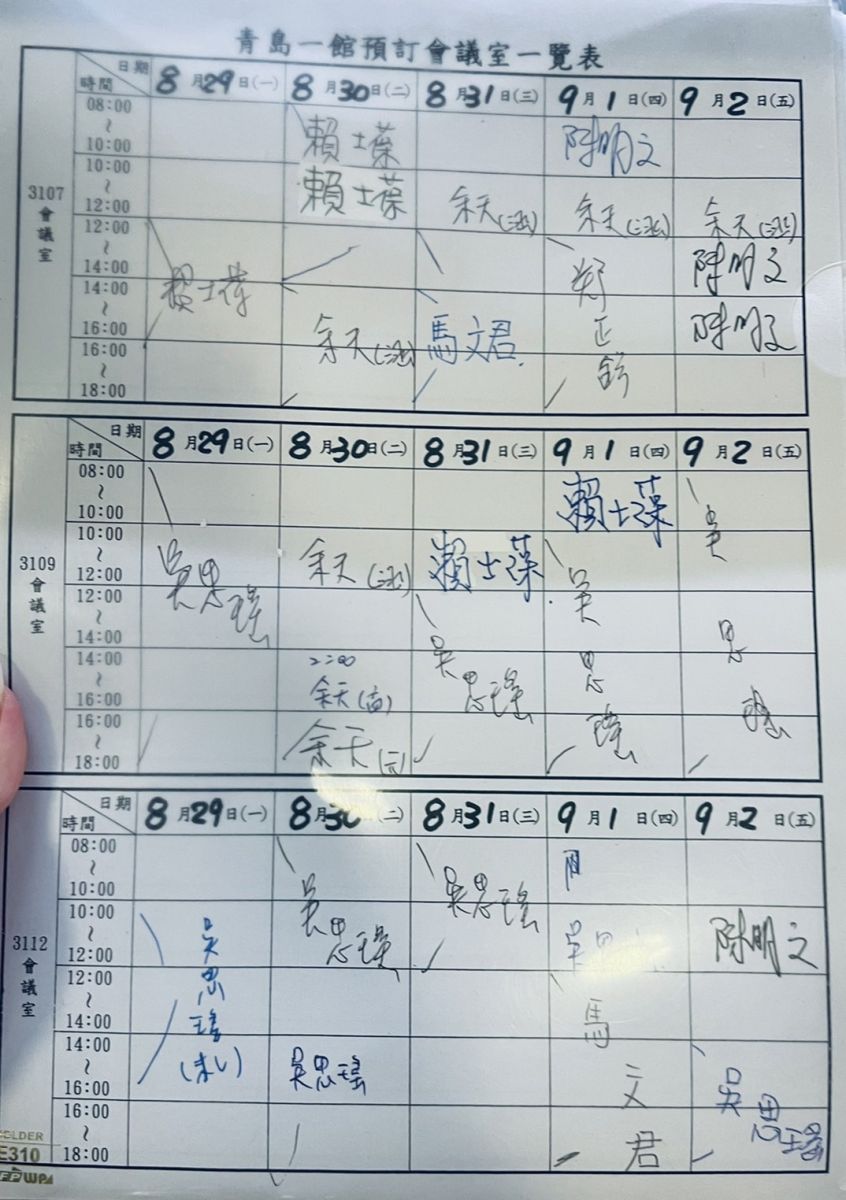 青島一館預訂會議室一覽表
日期 時間 8月29日(一) 8月30日(二) 8月31日(三) 9月1日(四) 9月2日(五)
3107會議室
08:00~10:00 賴士葆 陳明文
10:00~12:00 賴士葆 余天 余天 余天
12:00~14:00 陳明文
14:00~16:00 賴士葆 余天 馬文君 鄭正鈐 陳明文
16:00~18:00
日期 時間 8月29日(一) 8月30日(二) 8月31日(三) 9月1日(四) 9月2日(五)
3109會議室
08:00~10:00 賴士葆 吳思瑤
10:00~12:00 吳思瑤 余天 賴士葆 吳思瑤
12:00~14:00 吳思瑤
14:00~16:00 2:00 余天(高)
16:00~18:00 余天(元)
日期 時間 8月29日(一) 8月30日(二) 8月31日(三) 9月1日(四) 9月2日(五)
3112會議室
08:00~10:00 吳思瑤 吳思瑤
10:00~12:00 吳思瑤 陳明文
12:00~14:00 馬文君
14:00~16:00 吳思瑤 吳思瑤
16:00~18:00
OLDER
E310
WPA